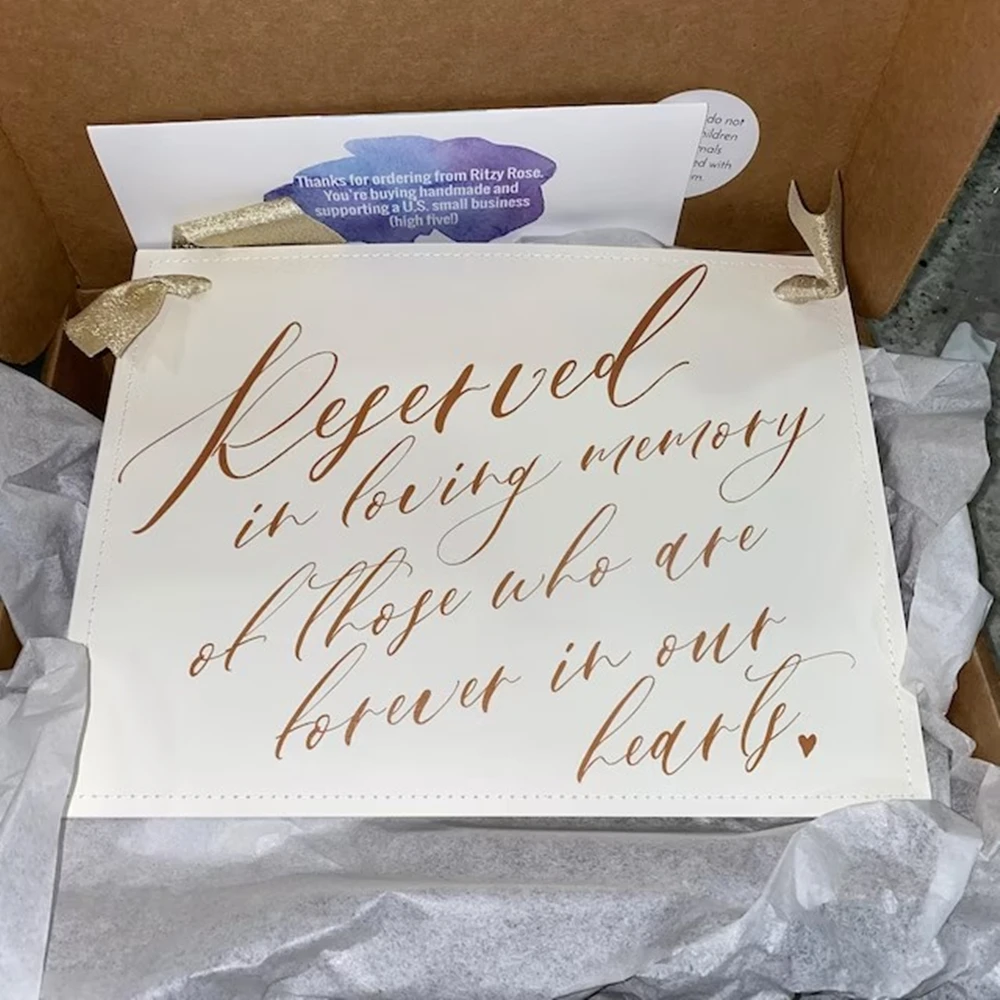 Thanks for ordering from Ritzy Rose.
You're buying handmade and
supporting a U.S. small business
(high five!)
do not
with
Reserved
in loving memory
of those who are
forever in our
hearts.